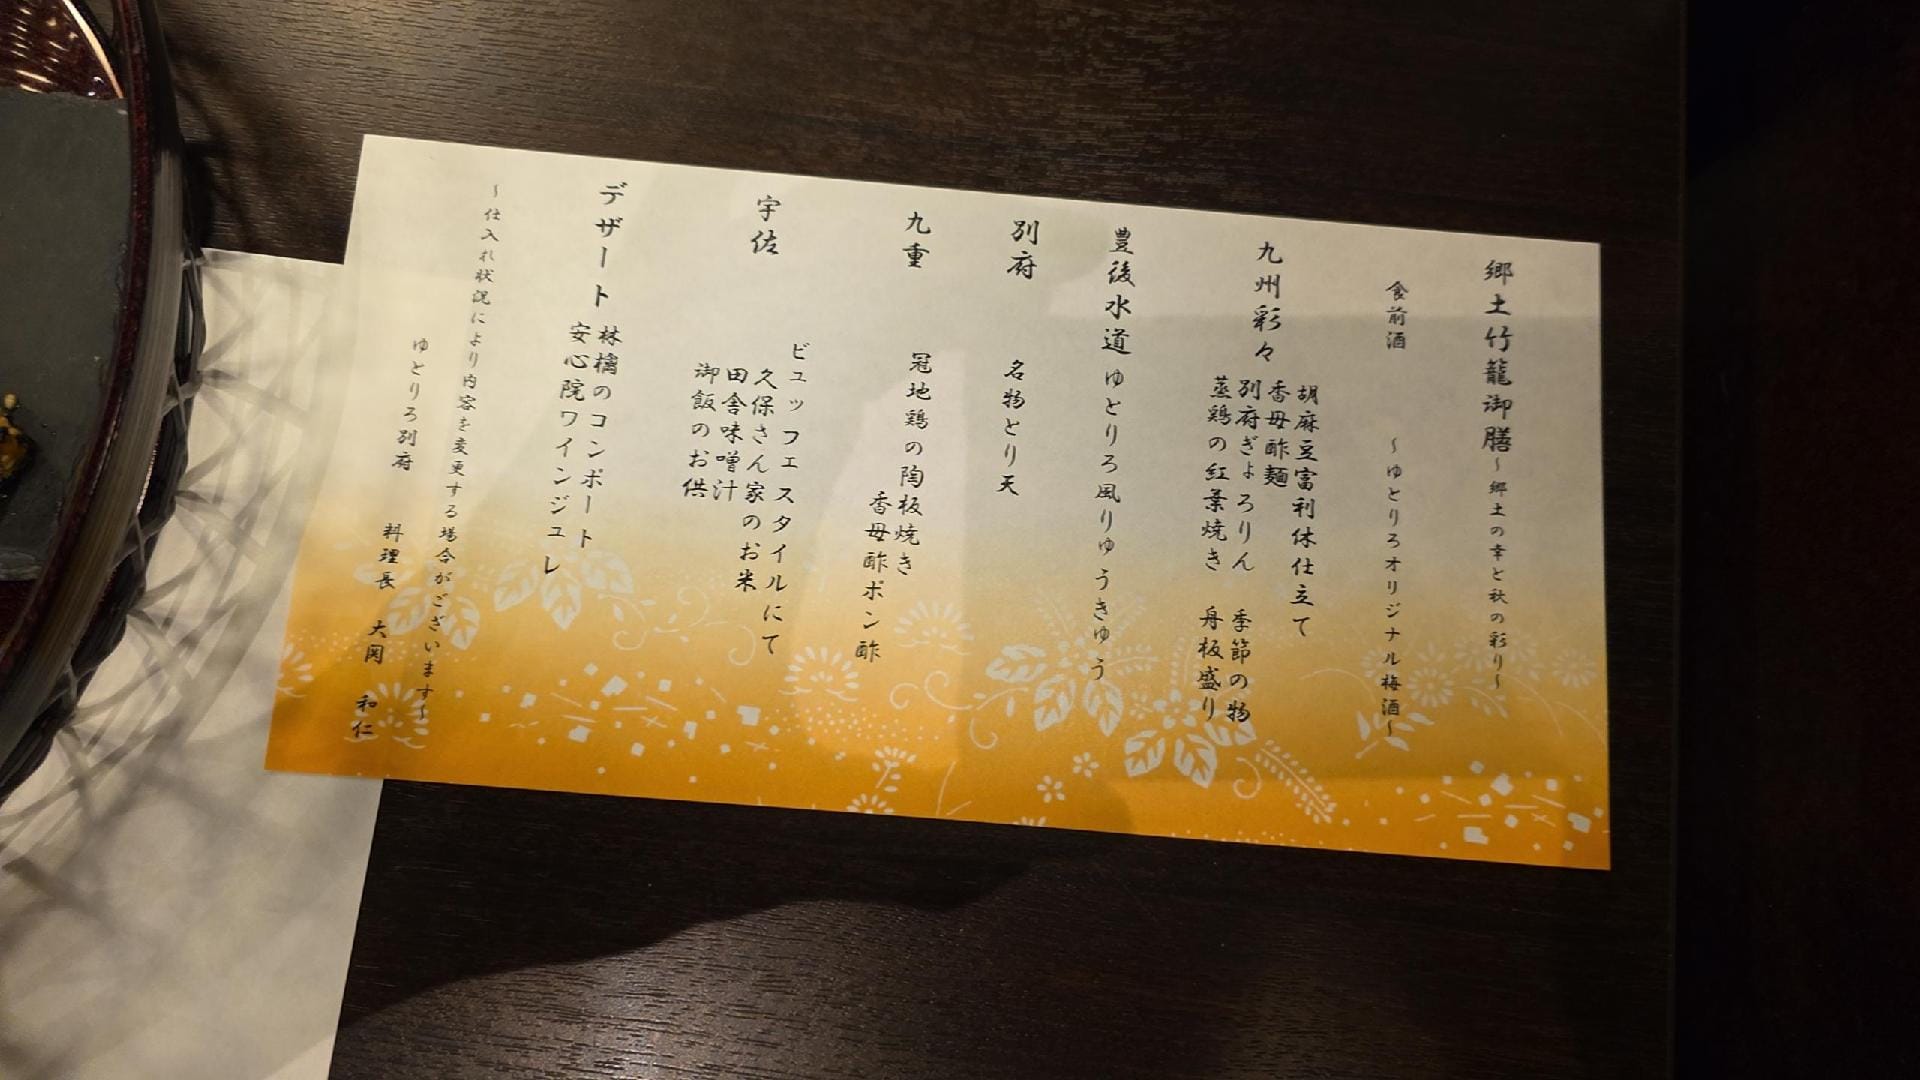 郷土竹籠御膳～郷土の幸と秋の彩り～
食前酒 ～ゆとりろオリジナル梅酒～
九州彩々
胡麻豆富利休仕立て
香母酢麺
別府ぎょろりん 季節の物
蒸鶏の紅葉焼き 舟板盛り
豊後水道 ゆとりろ風りゅうきゅう
別府 名物とり天
九重 冠地鶏の陶板焼き
香母酢ポン酢
宇佐 ビュッフェスタイルにて
久保さん家のお米
田舎味噌汁
御飯のお供
デザート 林檎のコンポート
安心院ワインジュレ
～仕入れ状況により内容を変更する場合がございます～
ゆとりろ別府 料理長 大関 和仁